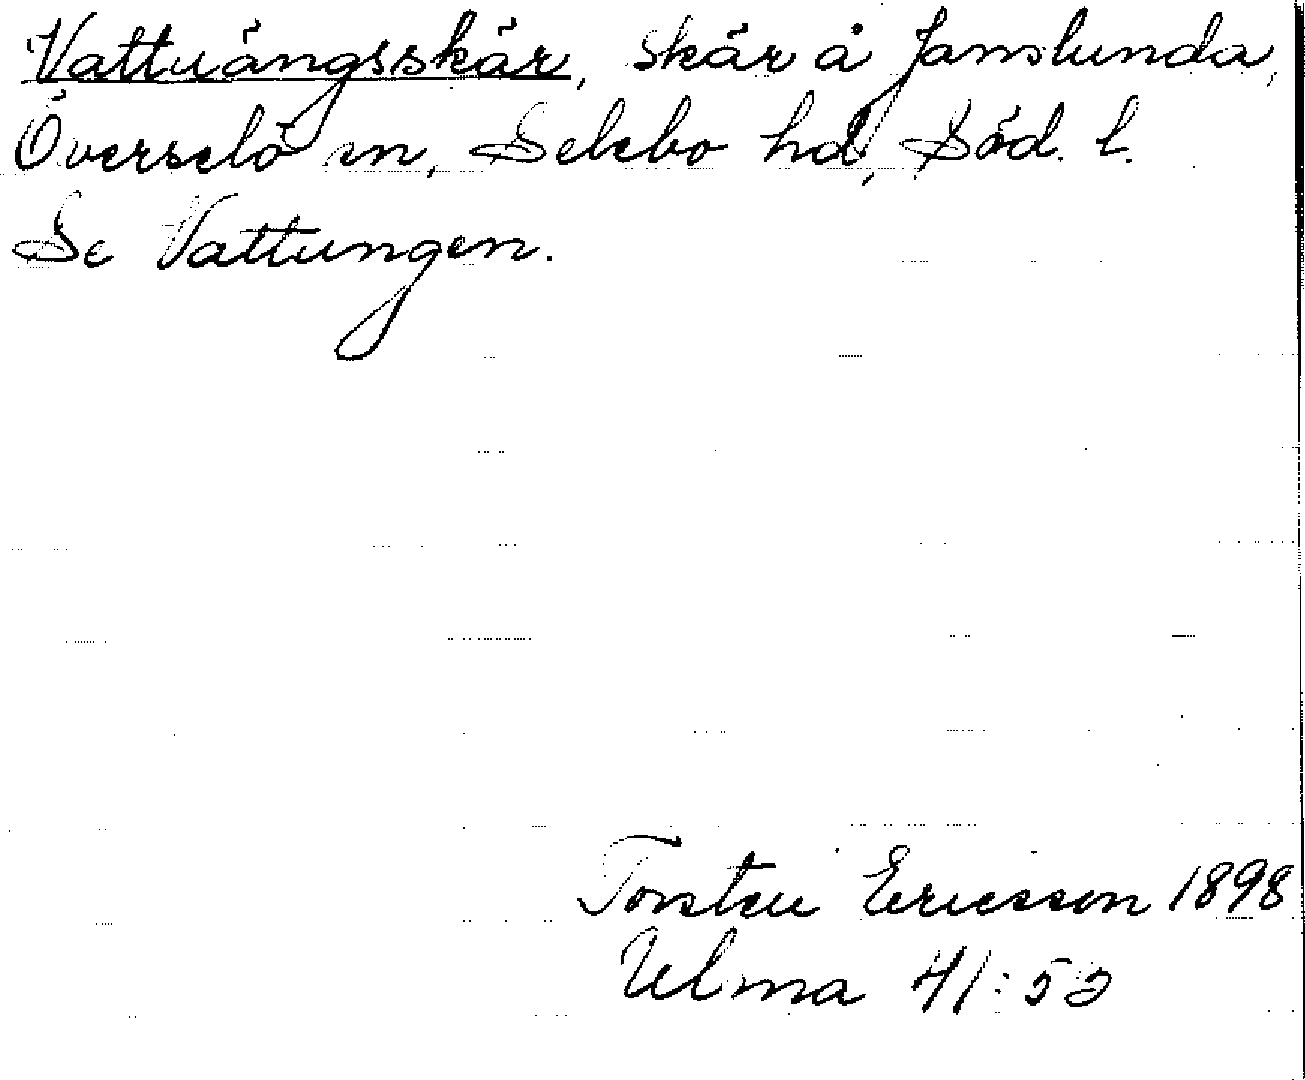 Vattuängsskär, skär å Jamslunda,
Överselö sn, Selebo hd, Söd. l.
Se Vattungen.
Torsten Ericsson 1898
Ulma 41:52